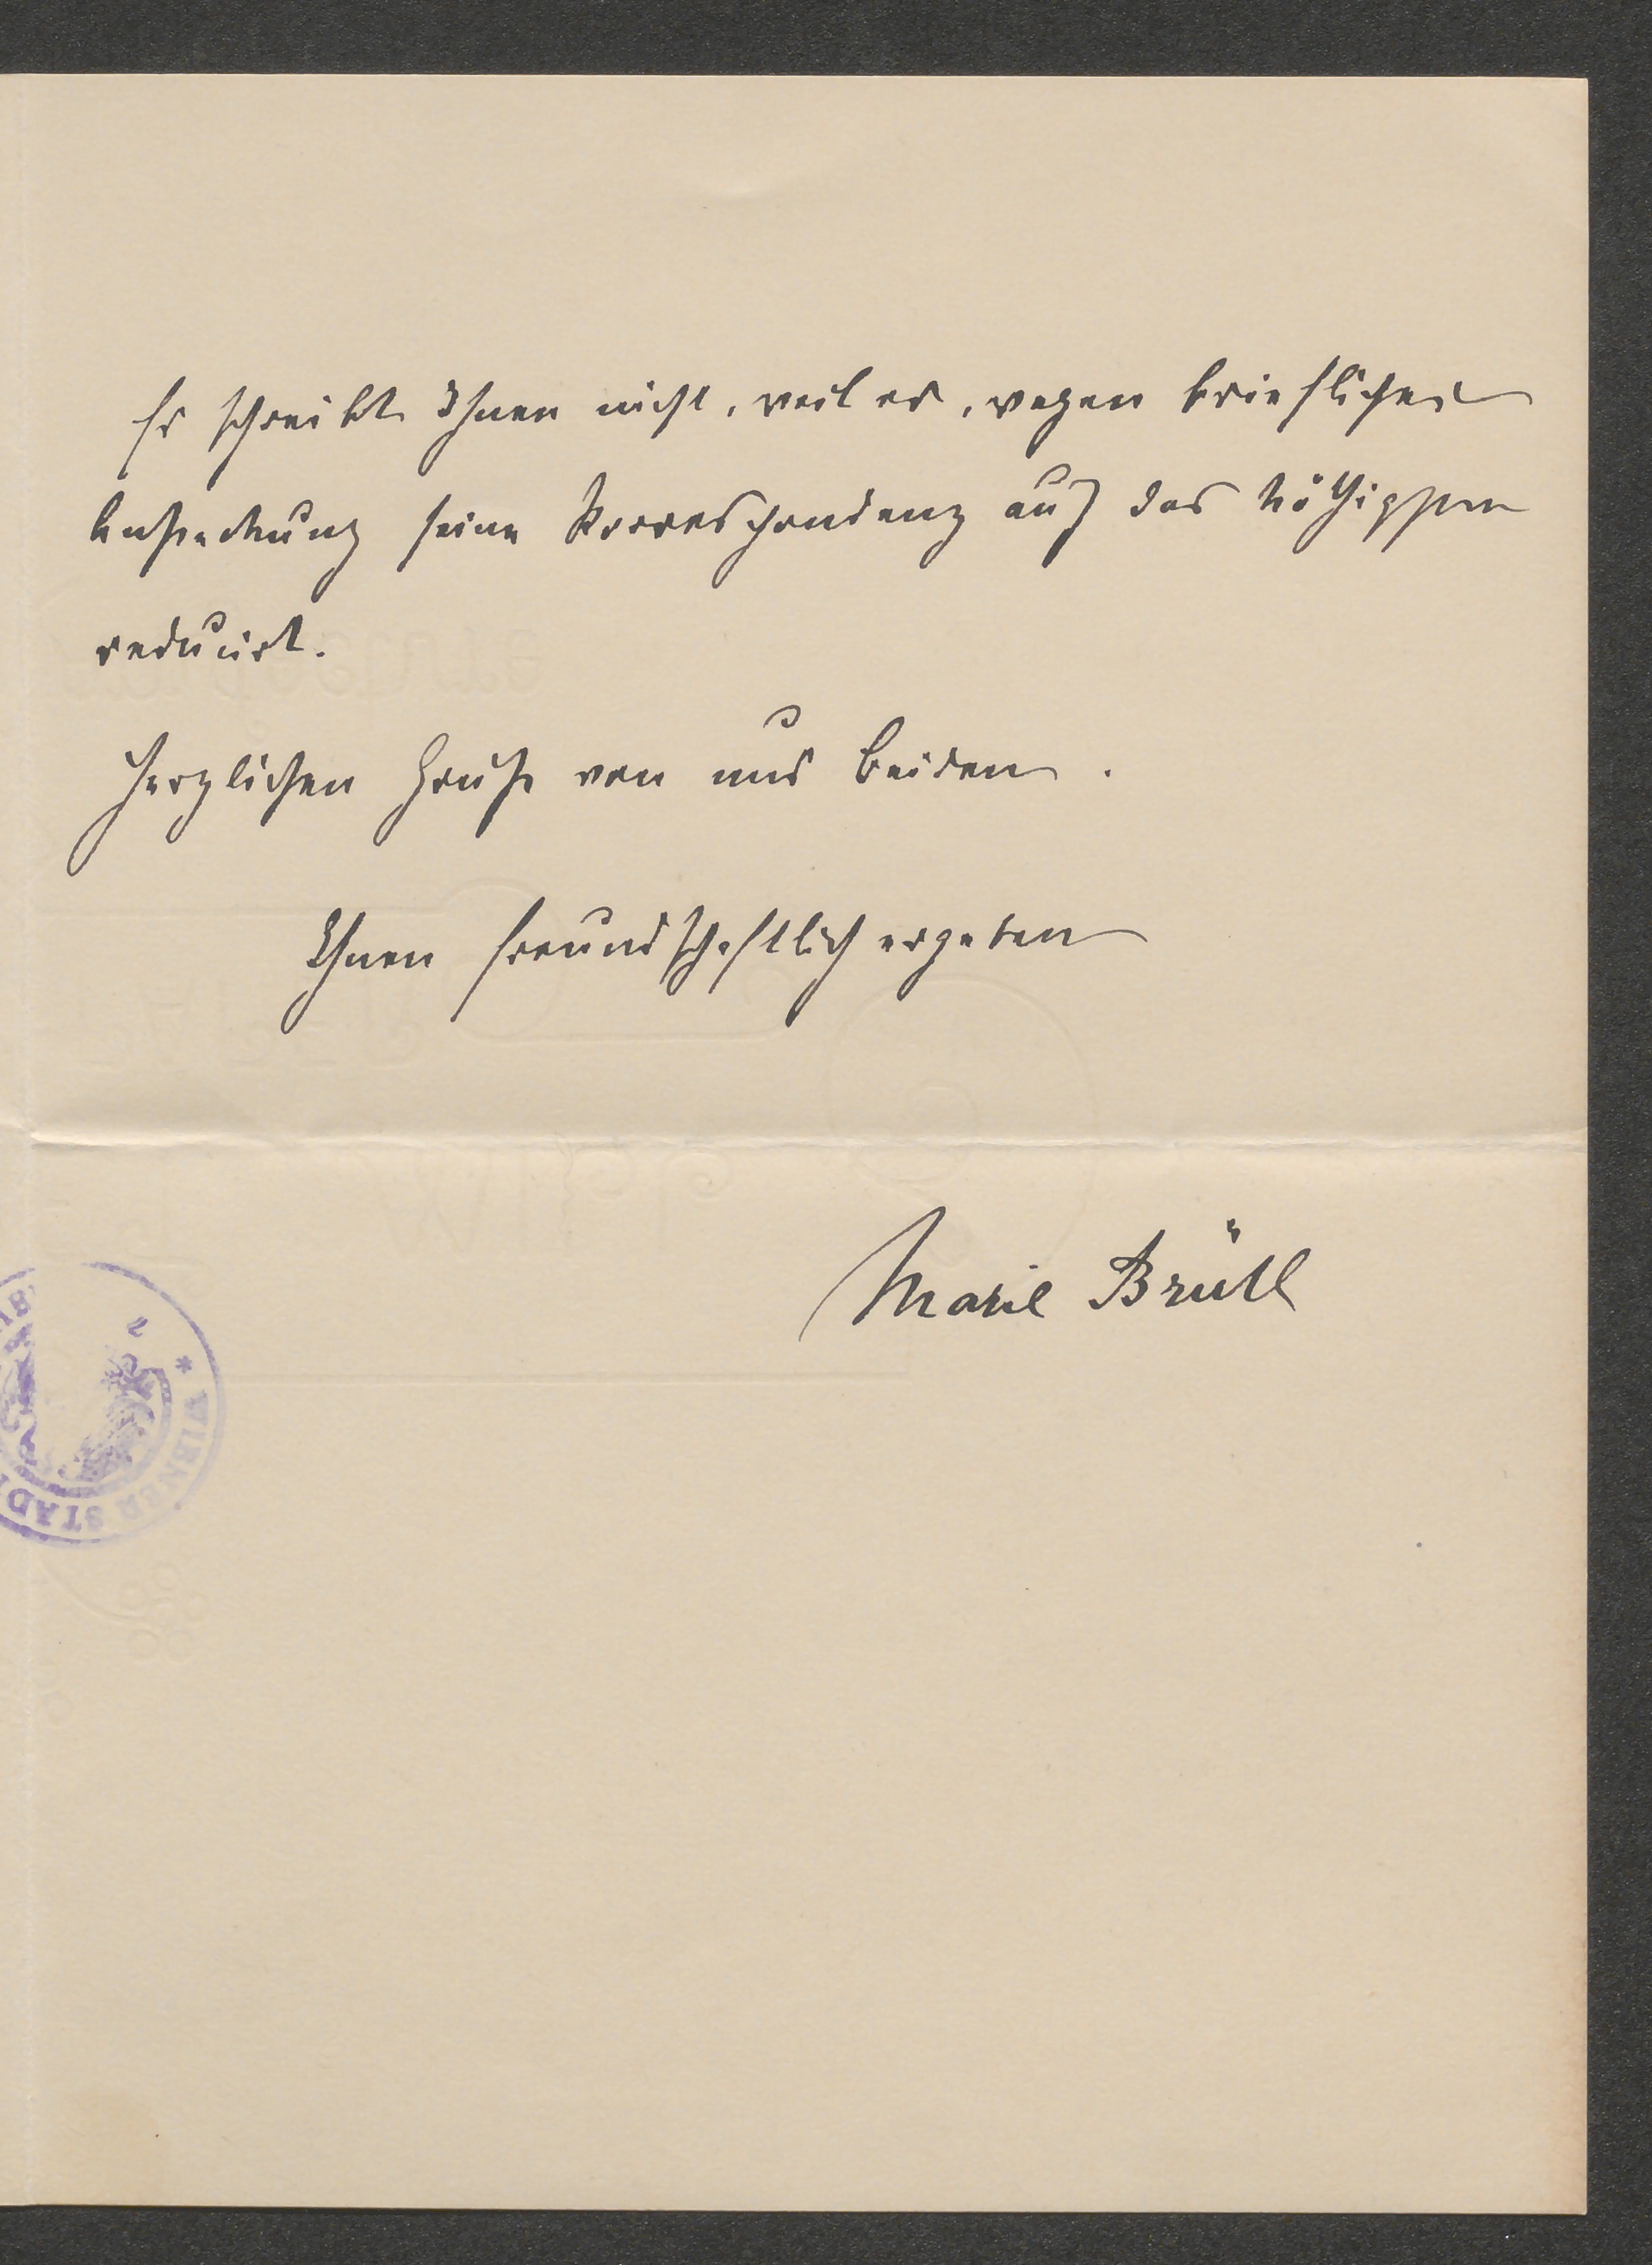 Er schreibt Ihnen nicht, weil er, wegen brieflicher
Ansteckung seine Korrespondenz auf das Nöthigste
reducirt.
Herzlichen Gruß von uns Beiden.
Ihnen freundschaftlich ergeben
Marie Brüll
* WIENER STAD